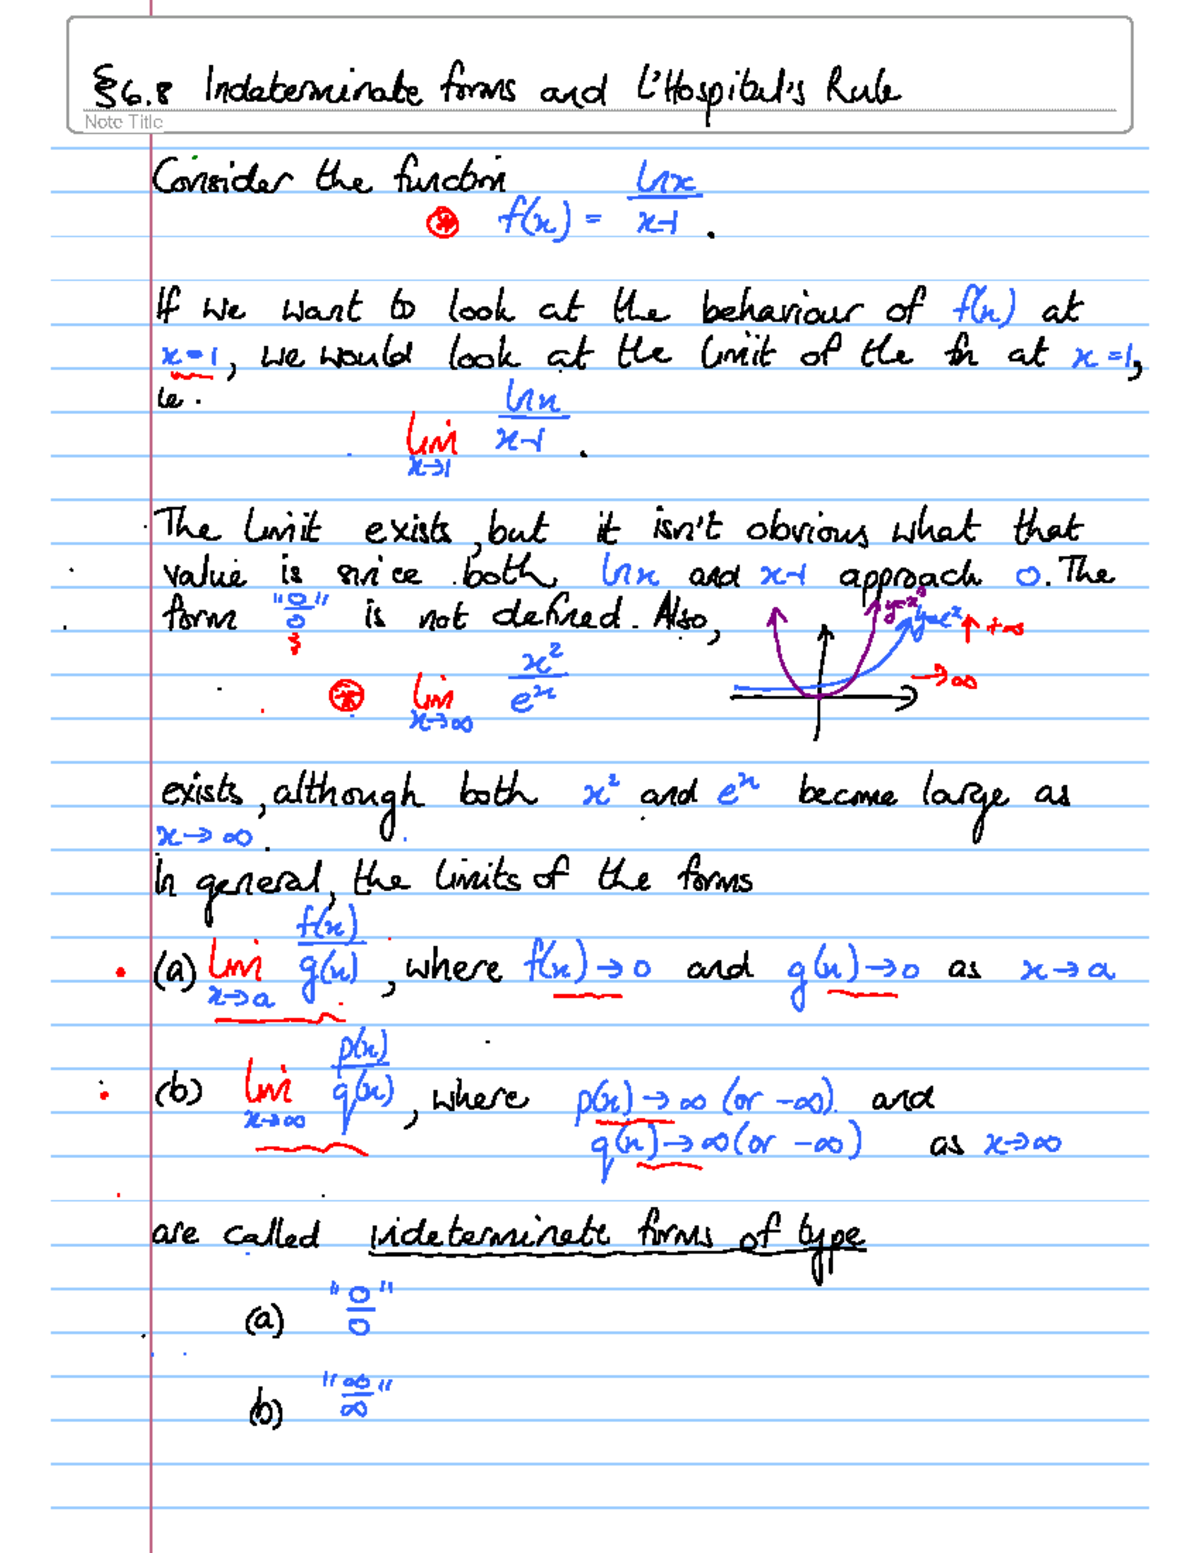 §6.8 Indeterminate forms and L'Hospital's Rule
Note Title
Consider the function
⊛ f(x) = lnx / x-1 .
If we want to look at the behaviour of f(x) at
x=1, we would look at the limit of the fn at x=1,
ie.
lim x→1 lnx / x-1 .
The limit exists, but it isn't obvious what that
value is since both lnx and x-1 approach 0. The
form "0/0" is not defined. Also,
y=x² y=e^x ↑ +∞
→∞
⊛ lim x→∞ x² / e^x
exists, although both x² and e^x become large as
x→∞.
In general, the limits of the forms
(a) lim x→a f(x) / g(x) , where f(x)→0 and g(x)→0 as x→a
(b) lim x→∞ p(x) / q(x) , where p(x)→∞ (or -∞) and
q(x)→∞ (or -∞) as x→∞
are called indeterminate forms of type
(a) "0/0"
(b) "∞/∞"